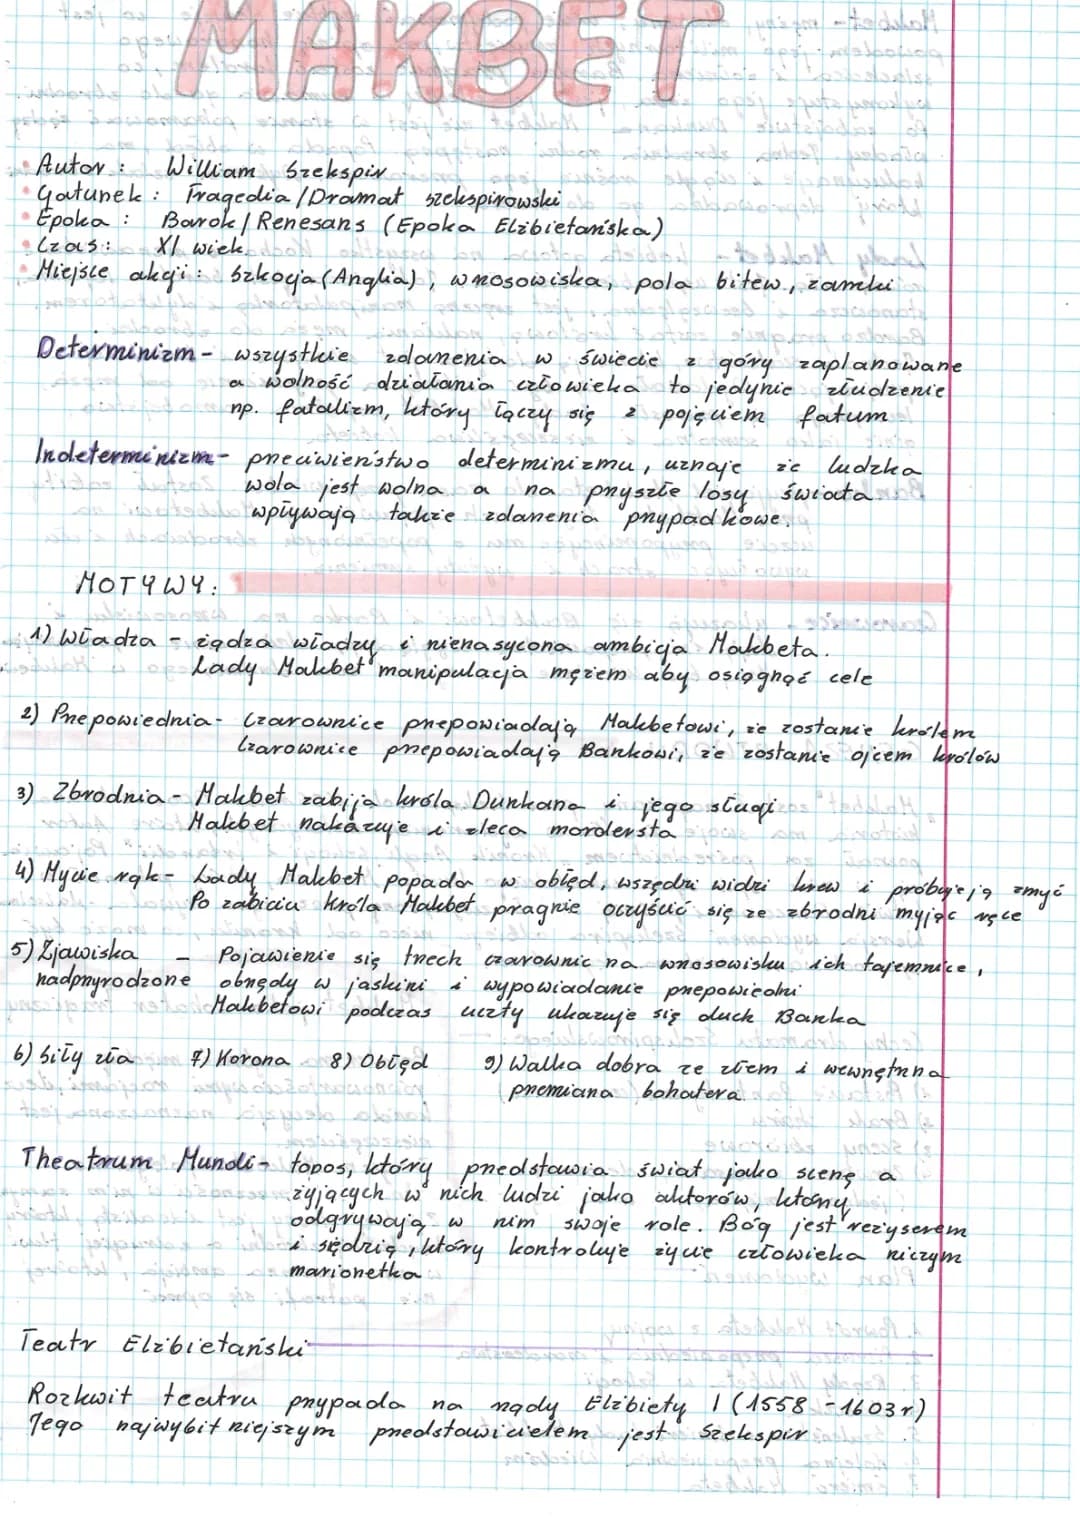 MAKBET
Autor: William Szekspir
Gatunek: Tragedia/Dramat szekspirowski
Epoka: Barok/Renesans (Epoka Elżbietańska)
Czas: XI wiek
Miejsce akcji: Szkocja (Anglia), wrzosowiska, pola bitew, zamki
Determinizm - wszystkie zdarzenia w świecie z góry zaplanowane
a wolność działania człowieka to jedynie złudzenie
np. fatalizm, który łączy się z pojęciem fatum
Indeterminizm - przeciwieństwo determinizmu, uznaje że ludzka
wola jest wolna a na przyszłe losy świata
wpływają także zdarzenia przypadkowe.
MOTYWY:
1) Władza - żądza władzy i nienasycona ambicja Makbeta.
Lady Makbet manipulacja mężem aby osiągnąć cele
2) Przepowiednia - Czarownice przepowiadają Makbetowi, że zostanie królem
Czarownice przepowiadają Bankowi, że zostanie ojcem królów
3) Zbrodnia - Makbet zabija króla Dunkana i jego sługi
Makbet nakazuje i zleca mordersta
4) Mycie rąk - Lady Makbet popada w obłęd, wszędzi widzi krew i próbuje ją zmyć
Po zabiciu króla Makbet pragnie oczyścić się ze zbrodni myjąc ręce
5) Zjawiska - Pojawienie się trzech czarownic na wrzosowisku ich tajemnice,
nadprzyrodzone obrzędy w jaskini i wypowiadanie przepowiedni
Makbetowi podczas uczty ukazuje się duch Banka
6) Siły zła 7) Korona 8) Obłęd 9) Walka dobra ze złem i wewnętrzna
przemiana bohatera
Theatrum Mundi - topos, który przedstawia świat jako scenę a
żyjących w nich ludzi jako aktorów, którzy
odgrywają w nim swoje role. Bóg jest reżyserem
i sędzią, który kontroluje życie człowieka niczym
marionetka
Teatr Elżbietański
Rozkwit teatru przypada na rządy Elżbiety I (1558 - 1603r)
Jego najwybitniejszym przedstawicielem jest Szekspir